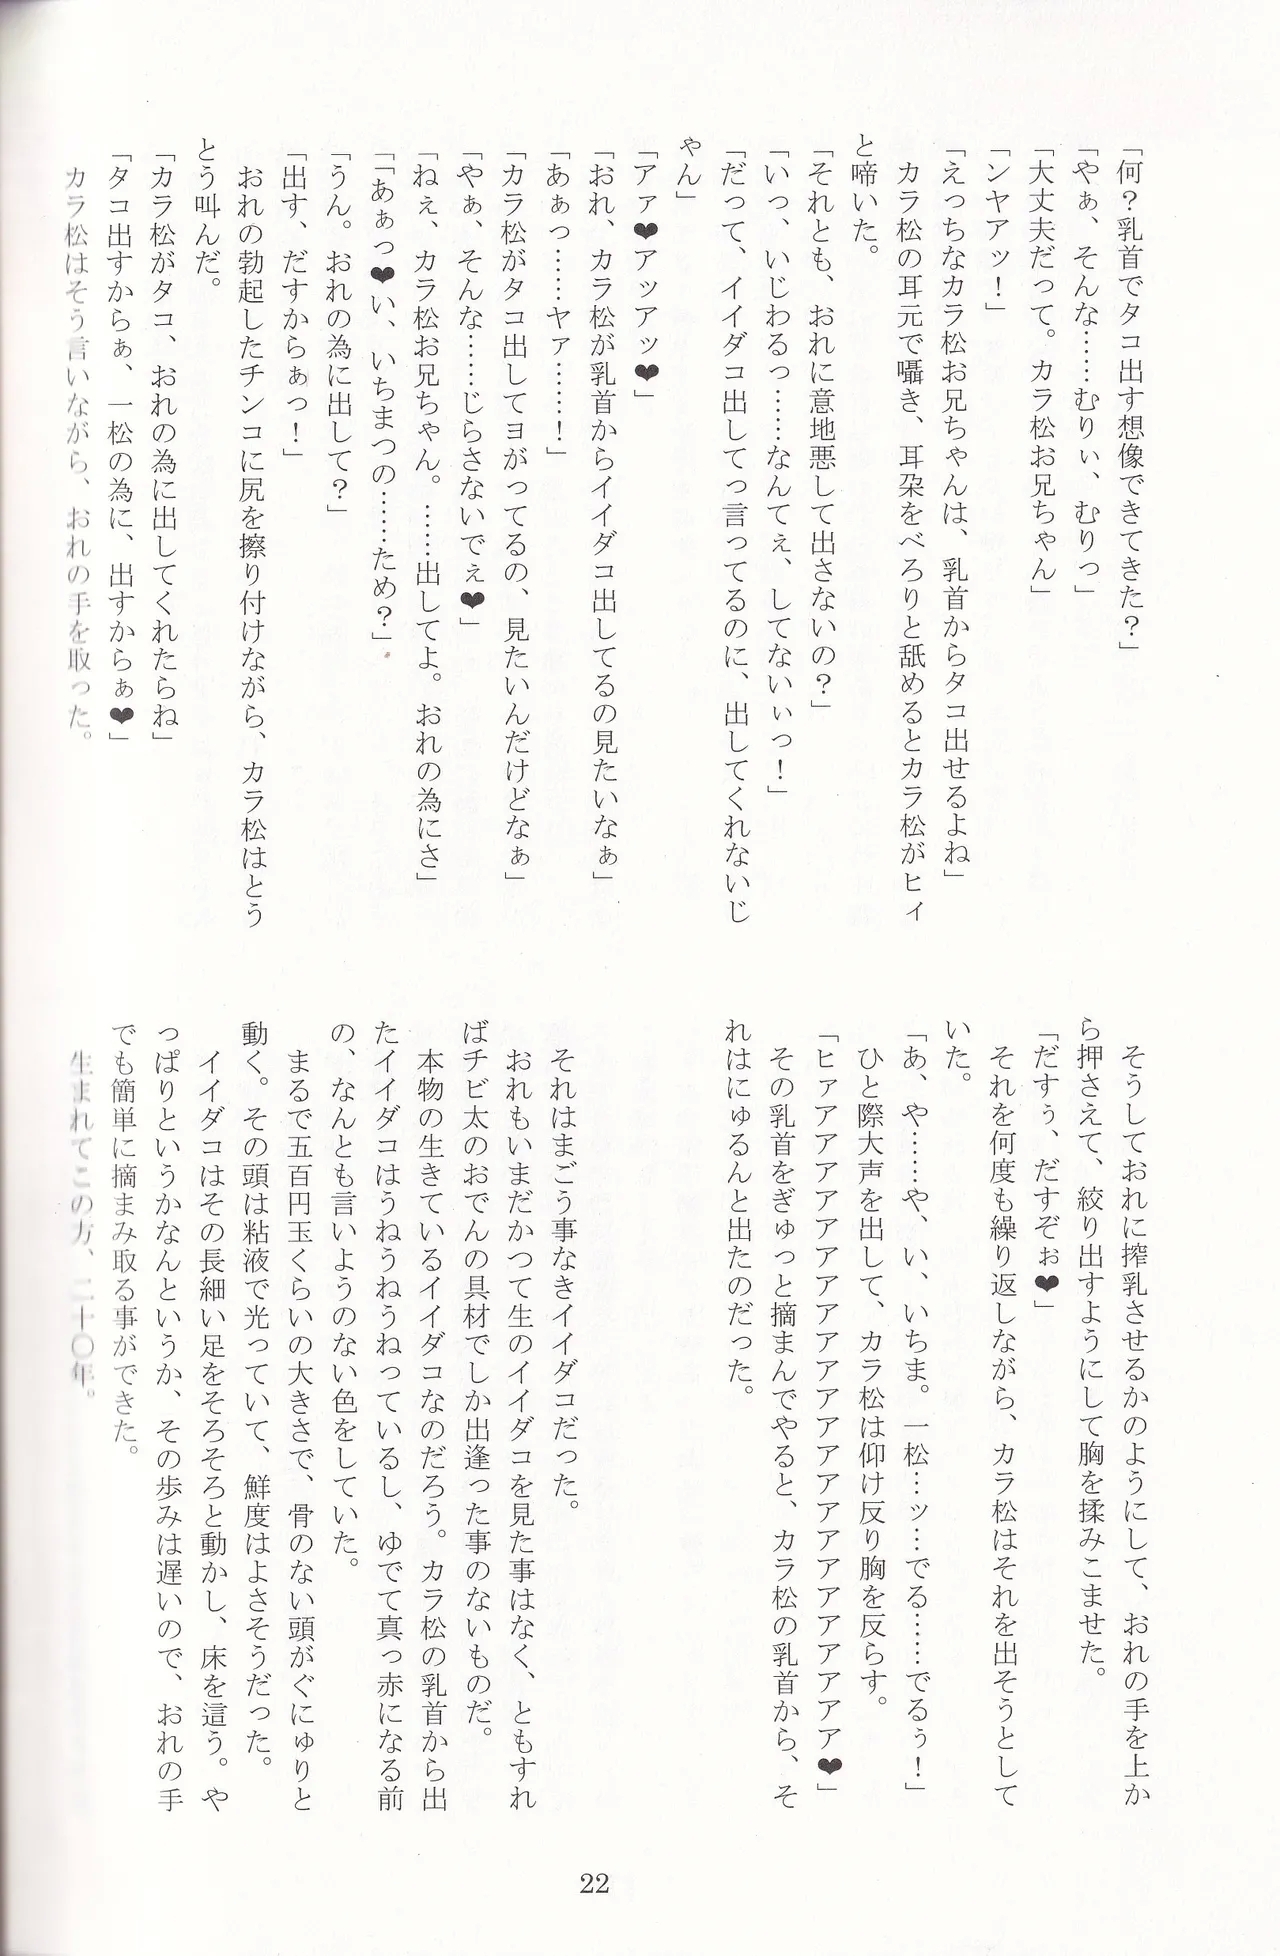 「何？乳首でタコ出す想像できてきた？」
「やぁ、そんな……むりぃ、むりっ」
「大丈夫だって。カラ松お兄ちゃん」
「ンヤアッ！」
「えっちなカラ松お兄ちゃんは、乳首からタコ出せるよね」
　カラ松の耳元で囁き、耳朶をべろりと舐めるとカラ松がヒィ
と啼いた。
「それとも、おれに意地悪して出さないの？」
「いっ、いじわるっ……なんてぇ、してないぃっ！」
「だって、イイダコ出してって言ってるのに、出してくれないじ
ゃん」
「アァ❤アッアッ❤」
「おれ、カラ松が乳首からイイダコ出してるの見たいなぁ」
「あぁっ……ヤァ……！」
「カラ松がタコ出してヨがってるの、見たいんだけどなぁ」
「やぁ、そんな……じらさないでぇ❤」
「ねぇ、カラ松お兄ちゃん。……出してよ。おれの為にさ」
「「あぁっ❤い、いちまつの……ため？」
「うん。おれの為に出して？」
「出す、だすからぁっ！」
　おれの勃起したチンコに尻を擦り付けながら、カラ松はとう
とう叫んだ。
「カラ松がタコ、おれの為に出してくれたらね」
「タコ出すからぁ、一松の為に、出すからぁ❤」
　カラ松はそう言いながら、おれの手を取った。
　そうしておれに搾乳させるかのようにして、おれの手を上か
ら押さえて、絞り出すようにして胸を揉みこませた。
「だすぅ、だすぞぉ❤」
　それを何度も繰り返しながら、カラ松はそれを出そうとして
いた。
「あ、や……や、い、いちま。一松…ッ…でる……でるぅ！」
　ひと際大声を出して、カラ松は仰け反り胸を反らす。
「ヒァアアアアアアアアアアアアアアアアアアアアアアア❤」
　その乳首をぎゅっと摘まんでやると、カラ松の乳首から、そ
れはにゅるんと出たのだった。
　それはまごう事なきイイダコだった。
　おれもいまだかつて生のイイダコを見た事はなく、ともすれ
ばチビ太のおでんの具材でしか出逢った事のないものだ。
　本物の生きているイイダコなのだろう。カラ松の乳首から出
たイイダコはうねうねうねっているし、ゆでて真っ赤になる前
の、なんとも言いようのない色をしていた。
　まるで五百円玉くらいの大きさで、骨のない頭がぐにゅりと
動く。その頭は粘液で光っていて、鮮度はよさそうだった。
　イイダコはその長細い足をそろそろと動かし、床を這う。や
っぱりというかなんというか、その歩みは遅いので、おれの手
でも簡単に摘まみ取る事ができた。
　生まれてこの方、二十〇年。
22